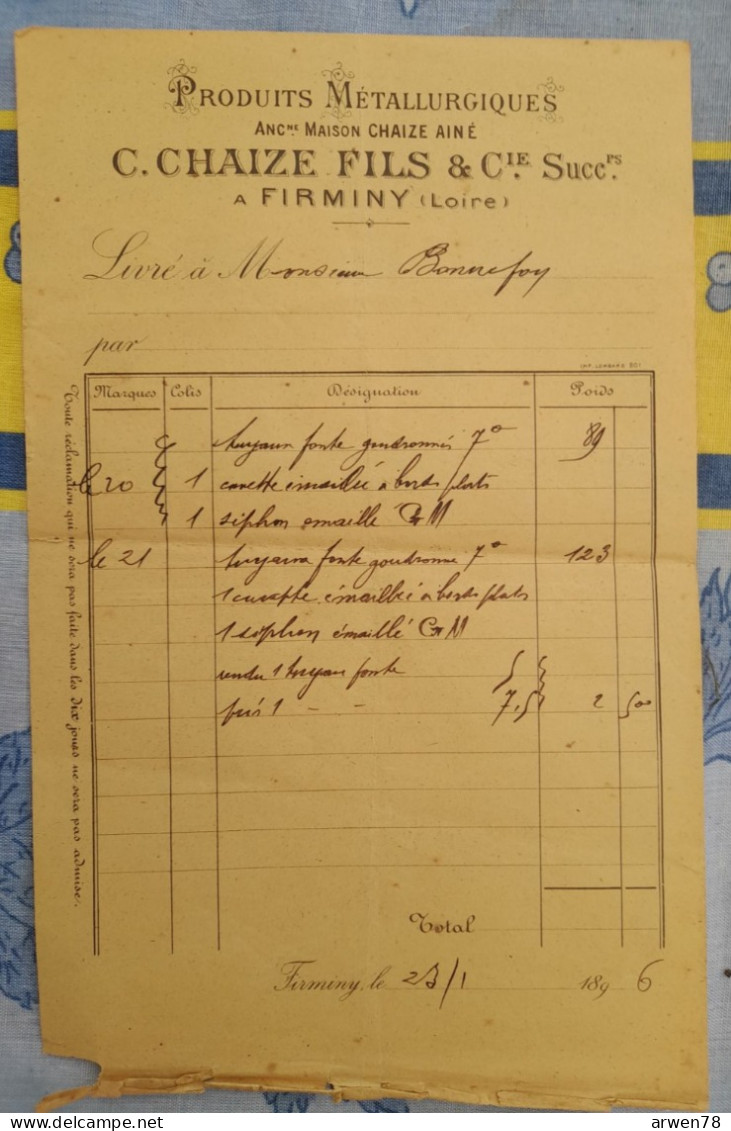 PRODUITS MÉTALLURGIQUES
ANC.NE MAISON CHAIZE AINÉ
C. CHAIZE FILS & CIE. SUCC.RS
A FIRMINY (Loire)
Livré à Monsieur Bonnefoy
par
IMP. LOMBARD
Marques Colis Désignation Poids
tuyaux fonte goudronnés 7º 89
le 20 1 cuvette émaillée à bords plats
1 siphon émaillé GM
le 21 tuyaux fonte goudronné 7º 123
1 cuvette émaillée à bords plats
1 siphon émaillé GM
rendu 1 tuyau fonte
pris 1 - - 7,5 2 500
Total
Firminy, le 23/1 1896
Toute réclamation qui ne sera pas faite dans les dix jours ne sera pas admise.
arwen78